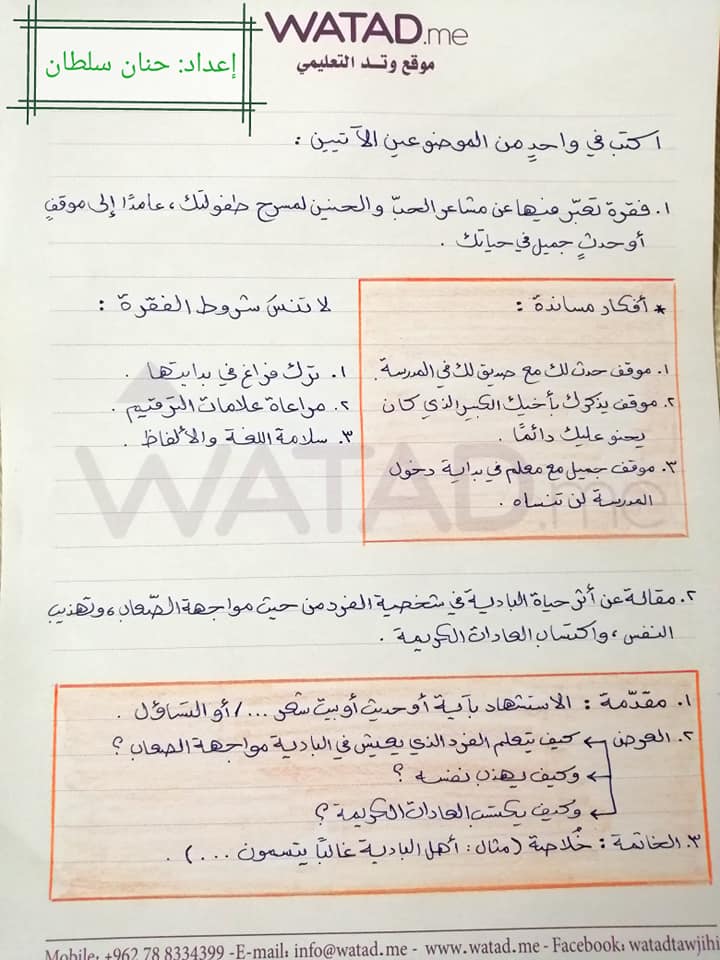 WATAD.me
موقع وتد التعليمي
إعداد: حنان سلطان
اكتب في واحدٍ من الموضوعين الآتيين :
١. فقرة تعبّر فيها عن مشاعر الحبّ والحنين لمسرح طفولتك، عامدًا إلى موقفٍ
أو حدثٍ جميل في حياتك .
* أفكار مساندة :
١. موقف حدث لك مع صديق لك في المدرسة.
٢. موقف يذكرك بأخيك الكبير الذي كان
يحنو عليك دائمًا .
٣. موقف جميل مع معلم في بداية دخول
المدرسة لن تنساه .
لا تنسَ شروط الفقرة :
١. ترك فراغ في بدايتها .
٢. مراعاة علامات الترقيم .
٣. سلامة اللغة والألفاظ .
WATAD.me
٢. مقالة عن أثر حياة البادية في شخصية الفرد من حيث مواجهة الصّعاب، وتهذيب
النفس، واكتساب العادات الكريمة .
١. مقدّمة : الاستشهاد بآية أو حديث أو بيت شعر ... / أو التساؤل .
٢. العرض ← كيف يتعلم الفرد الذي يعيش في البادية مواجهة الصعاب ؟
← وكيف يهذب نفسه ؟
← وكيف يكتسب العادات الكريمة ؟
٣. الخاتمة : خُلاصة (مثال : أهل البادية غالبًا يتسمون ...) .
Mobile: +962 78 8334399 -E-mail: info@watad.me - www.watad.me - Facebook: watadtawjihi